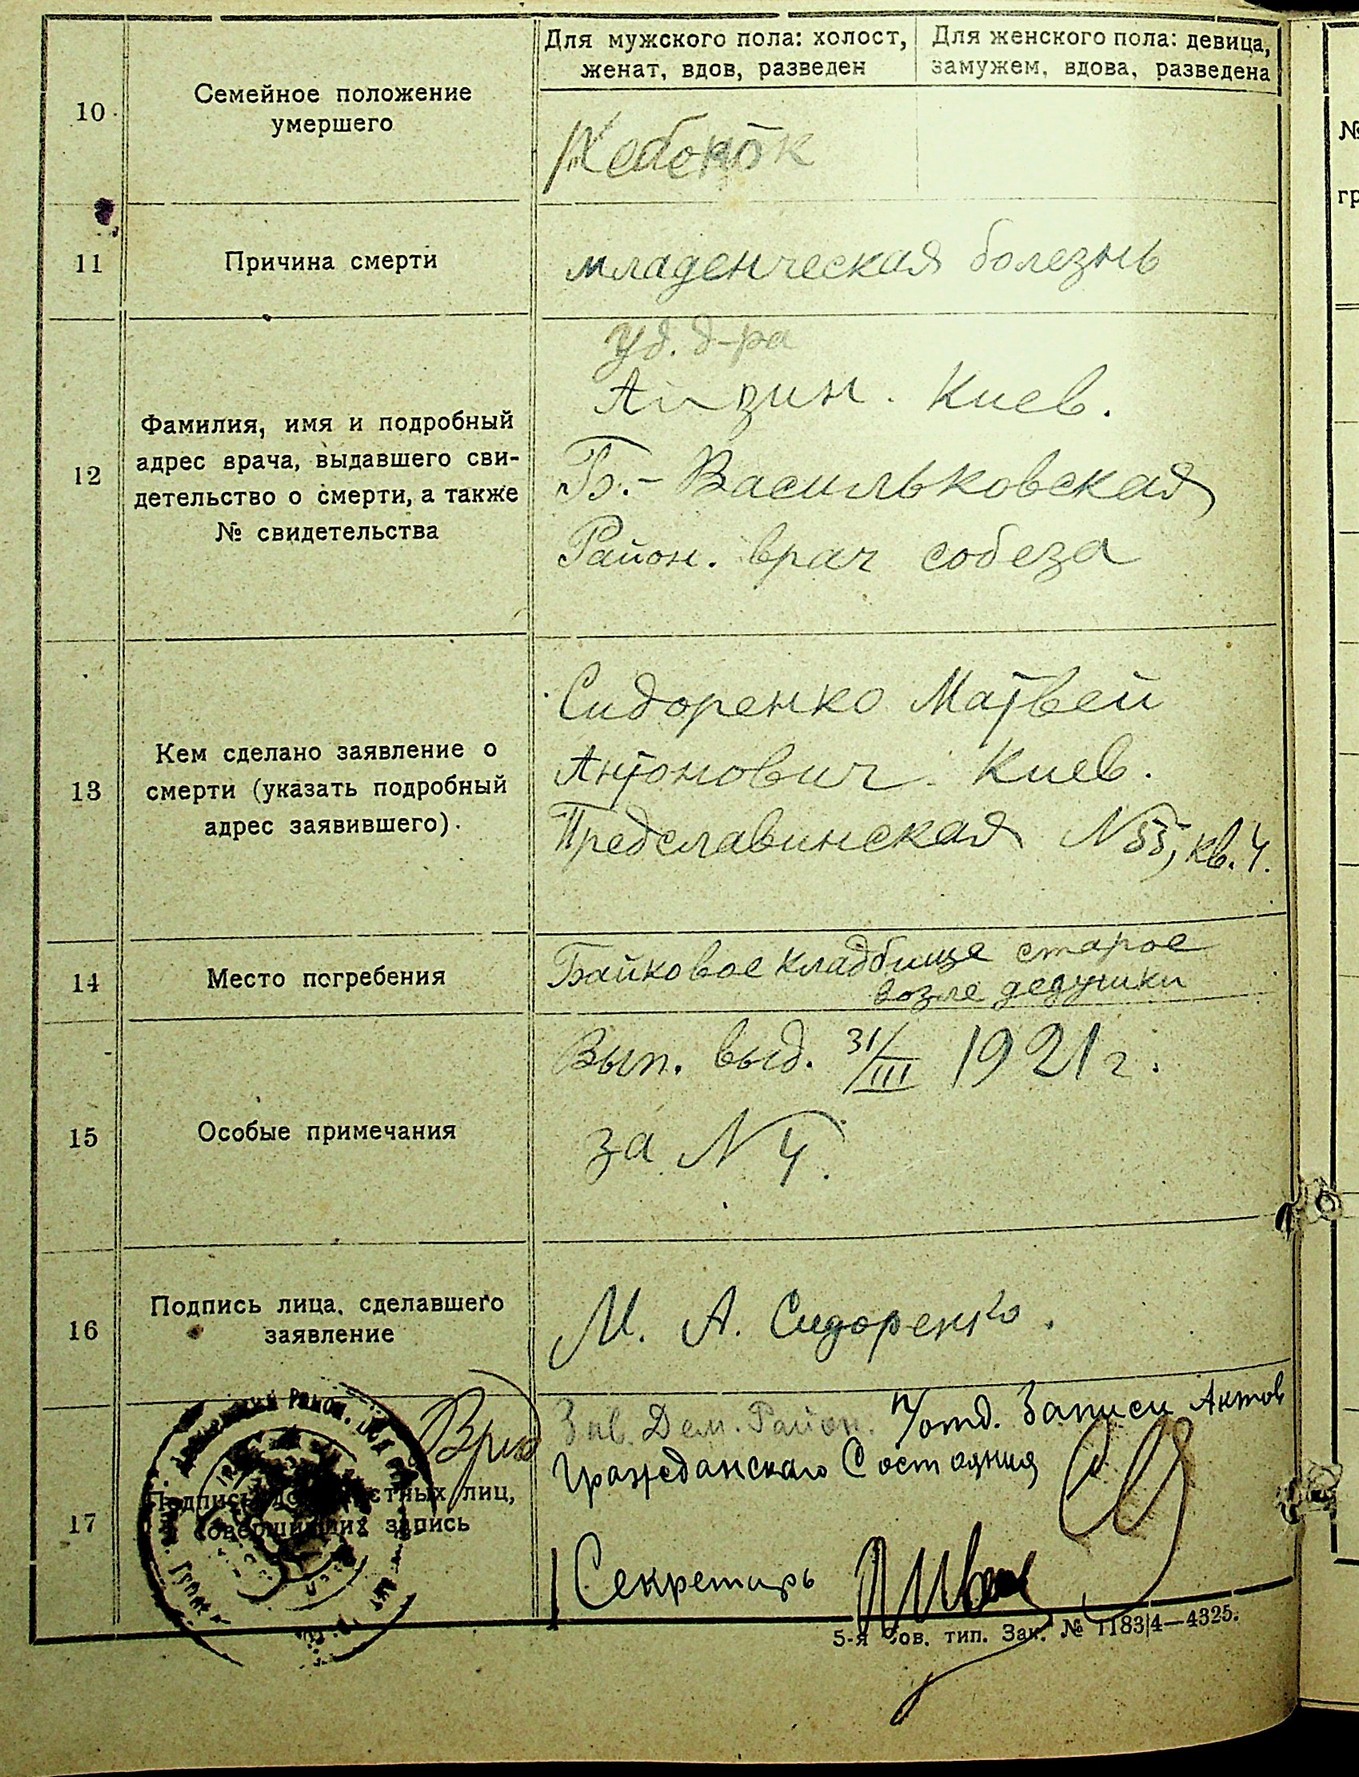 Для мужского пола: холост,
женат, вдов, разведен
Для женского пола: девица,
замужем, вдова, разведена
10
Семейное положение
умершего
11
Причина смерти
младенческая болезнь
12
Фамилия, имя и подробный
адрес врача, выдавшего сви-
детельство о смерти, а также
№ свидетельства
уд. д-ра
Киев.
Б.-Васильковская
Район. врач собеза
13
Кем сделано заявление о
смерти (указать подробный
адрес заявившего).
Сидоренко Матвей
Антонович. Киев.
Предславинская N 55, кв. 4.
14
Место погребения
Байковое кладбище старое
возле дедушки
15
Особые примечания
Вып. выд. 31/III 1921 г.
за N 4.
16
Подпись лица, сделавшего
заявление
М. А. Сидоренко.
17
Подпись должностных лиц,
совершивших запись
Врид
Зав. Дем. Район. п/отд. Записи Актов
Гражданского Состояния
Секретарь
5-я Сов. тип. Зак. № 1183|4—4325.
№
гр